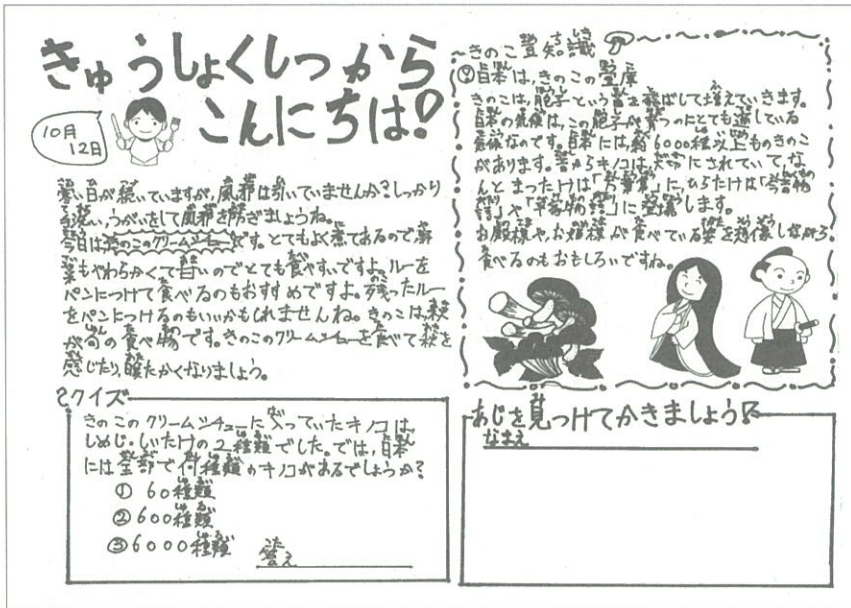 きゅうしょくしつから
こんにちは!
10月
12日
寒い日が続いていますが、風邪は引いていませんか?しっかり
手洗い、うがいをして風邪を防ぎましょうね。
今日はきのこのクリームシチューです。とてもよく煮てあるので野
菜もやわらかくて甘いのでとても食べやすいですよ。ルーを
パンにつけて食べるのもおすすめですよ。残ったルー
をパンにつけるのもいいかもしれませんね。きのこは、秋
が旬の食べ物です。きのこのクリームシチューを食べて秋を
感じたり、暖たかくなりましょう。
クイズ
きのこのクリームシチューに入っていたキノコは、
しめじ・しいたけの2種類でした。では、日本
には全部で何種類のキノコがあるでしょうか?
① 60種類
② 600種類
③ 6000種類 答え
~きのこ豆知識
日本は、きのこの宝庫
きのこは、胞子という を飛ばして増えていきます。
日本の気候は、この胞子が育つのにとても適している
気候なのです。日本には、約6000種以上ものきのこ
があります。昔からキノコは、大切にされていて、な
んとまったけは「万葉集」に、ひらたけは「今昔物
語」や「平家物語」に登場します。
お殿様や、お姫様が食べている姿を想像しながら
食べるのもおもしろいですね。
あじを見つけてかきましょう
なまえ